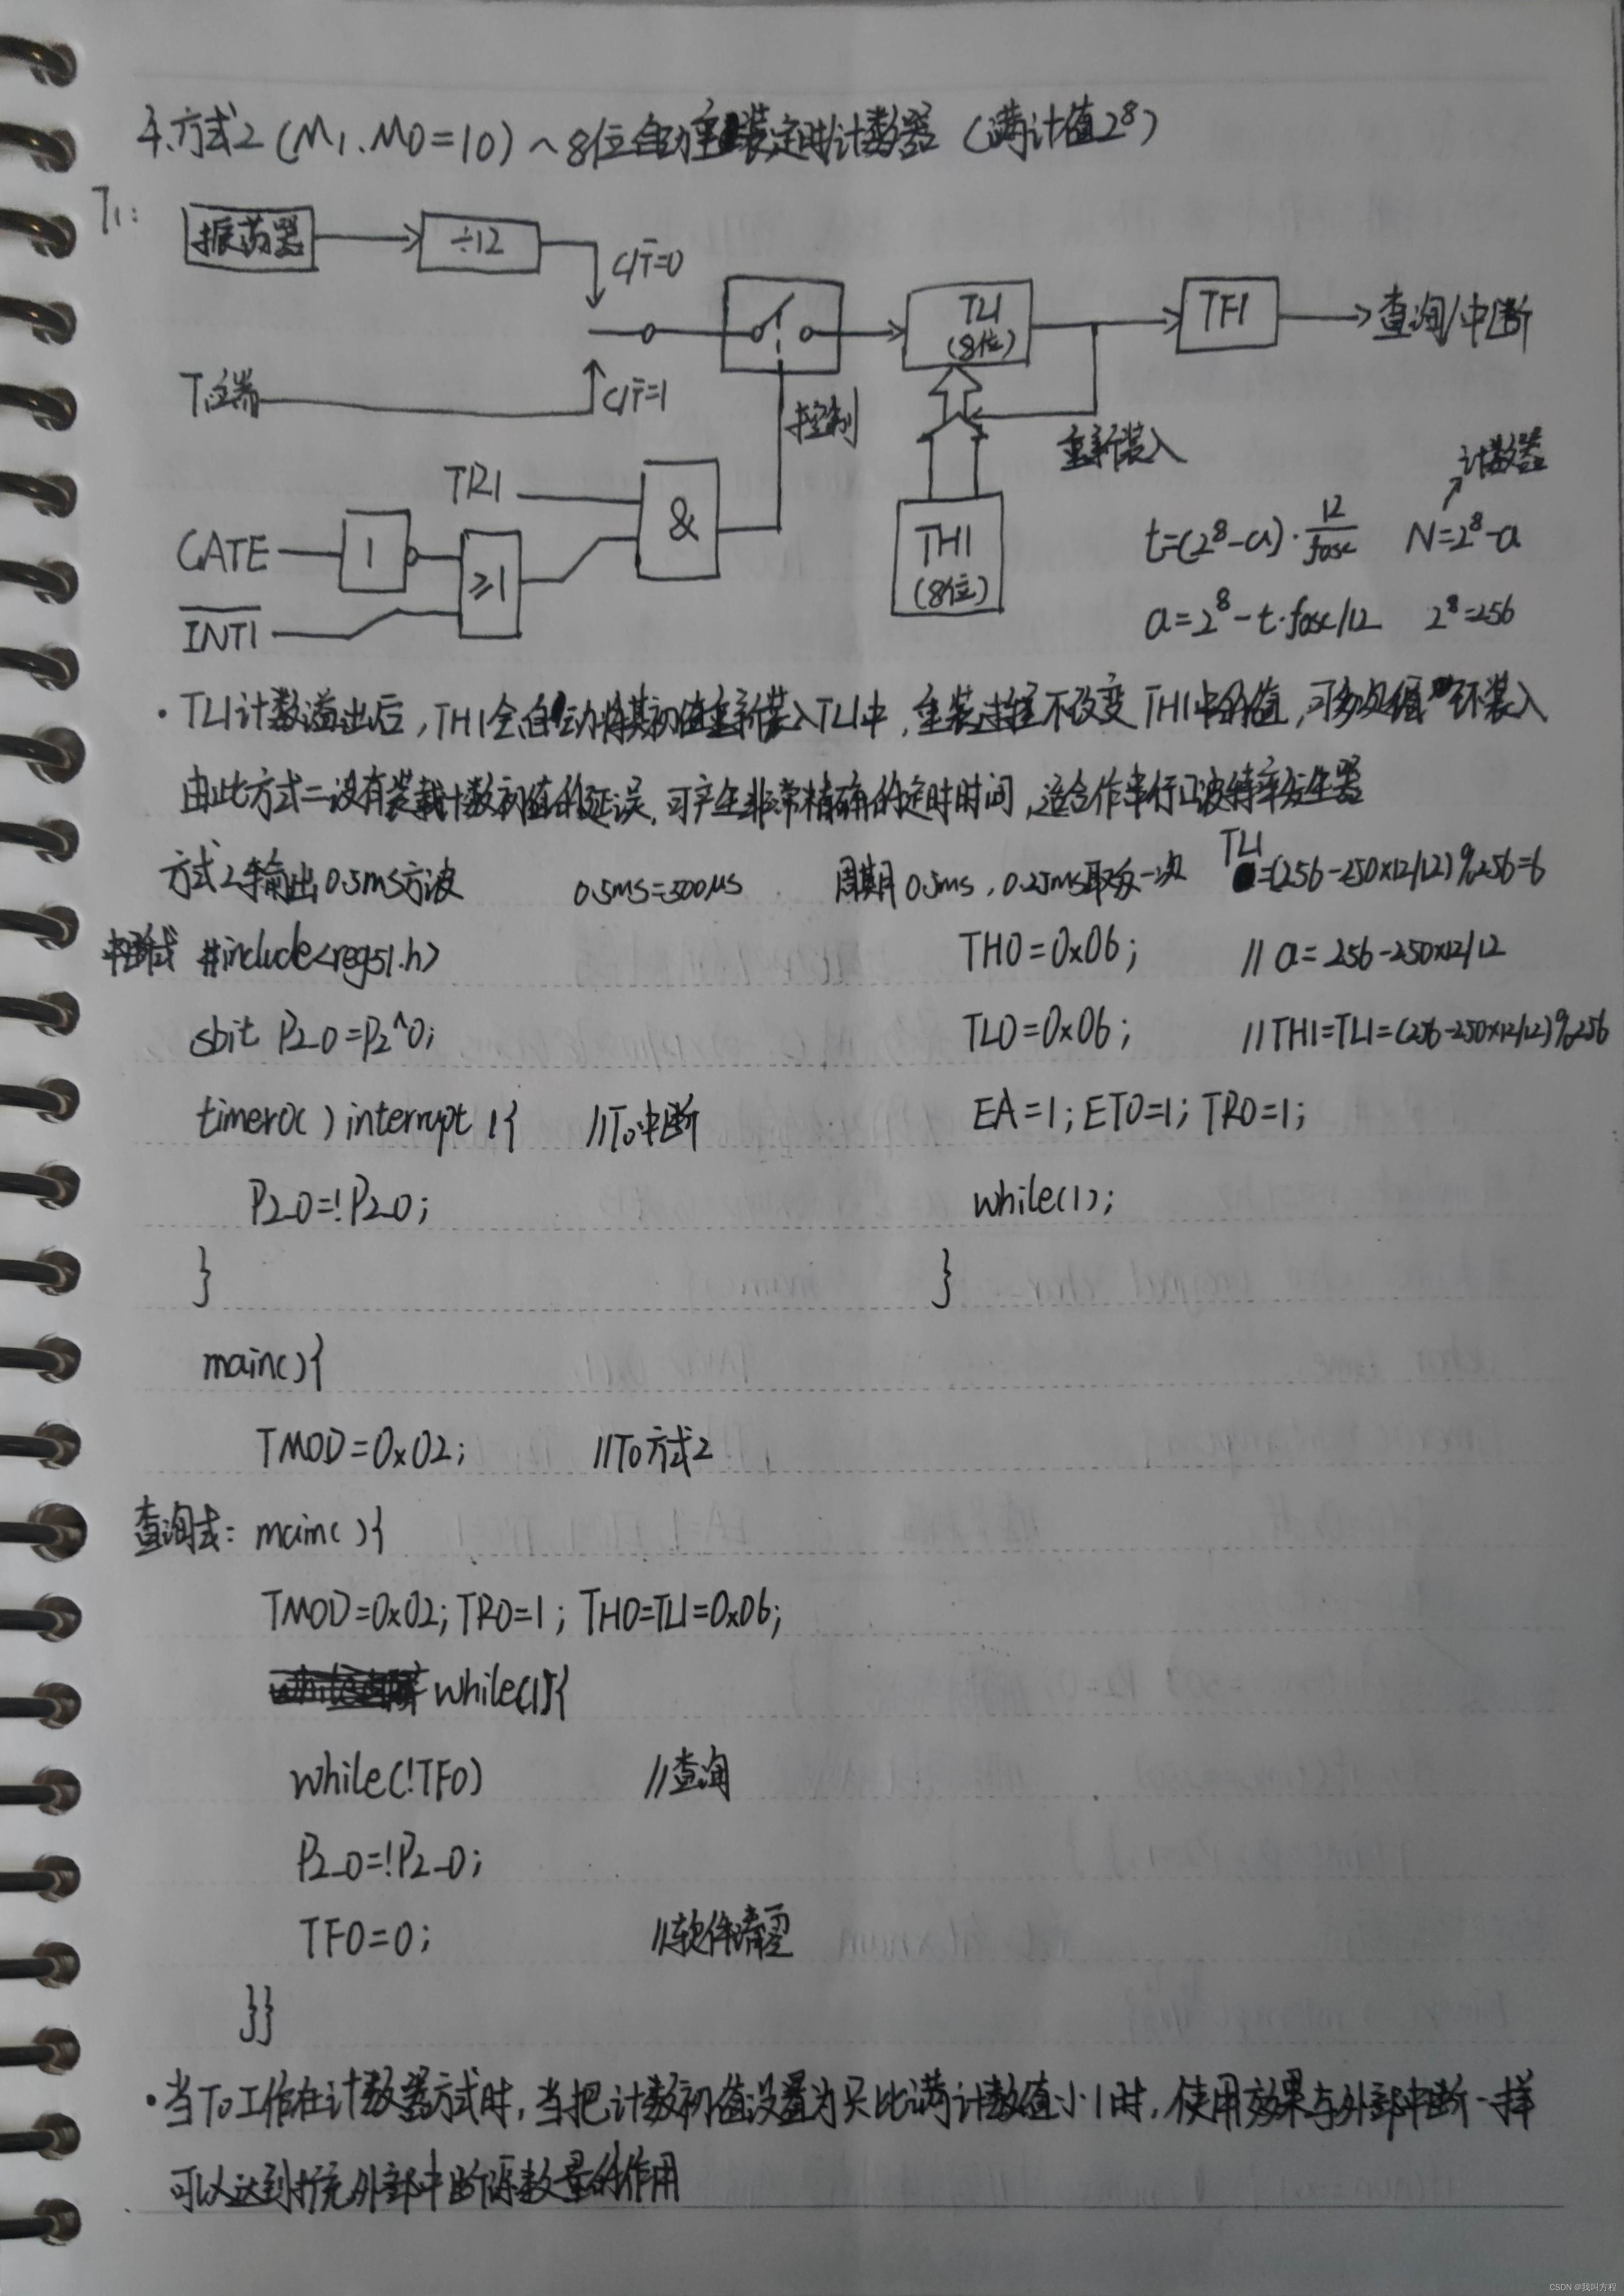 4. 方式2 (M1、M0=10) ~ 8位自动重装定时计数器 (满计值2⁸)
T1:
振荡器
÷12
C/T̄=0
TL1
(8位)
TF1
查询/中断
T1端
C/T̄=1
控制
重新装入
计数器
TR1
&
GATE
1
≥1
I̅N̅T̅1̅
TH1
(8位)
t=(2⁸-a)·12/fosc N=2⁸-a
a=2⁸-t·fosc/12 2⁸=256
·TL1计数溢出后,TH1会自动将其初值重新装入TL1中,重装过程不改变TH1中的值,可多次循环装入
由此方式二没有装载计数初值的延误,可产生非常精确的定时时间,适合作串行口波特率发生器
方式2输出0.5ms方波 0.5ms=500μs 周期0.5ms,0.25ms取反一次 TL1=(256-250×12/12)%256=6
中断式 #include<reg51.h>
sbit P2_0=P2^0;
timer0( ) interrupt 1{ //T0中断
P2_0=!P2_0;
}
main(){
TMOD=0x02; //T0方式2
TH0=0x06; //a=256-250×12/12
TL0=0x06; //TH1=TL1=(256-250×12/12)%256
EA=1; ET0=1; TR0=1;
while(1);
}
查询式: main( ){
TMOD=0x02; TR0=1; TH0=TL1=0x06;
while(1){
while(!TF0) //查询
P2_0=!P2_0;
TF0=0; //软件清零
}}
·当T0工作在计数器方式时,当把计数初值设置为只比满计数值小1时,使用效果与外部中断一样
可以达到扩充外部中断源数量的作用
CSDN @我叫方程